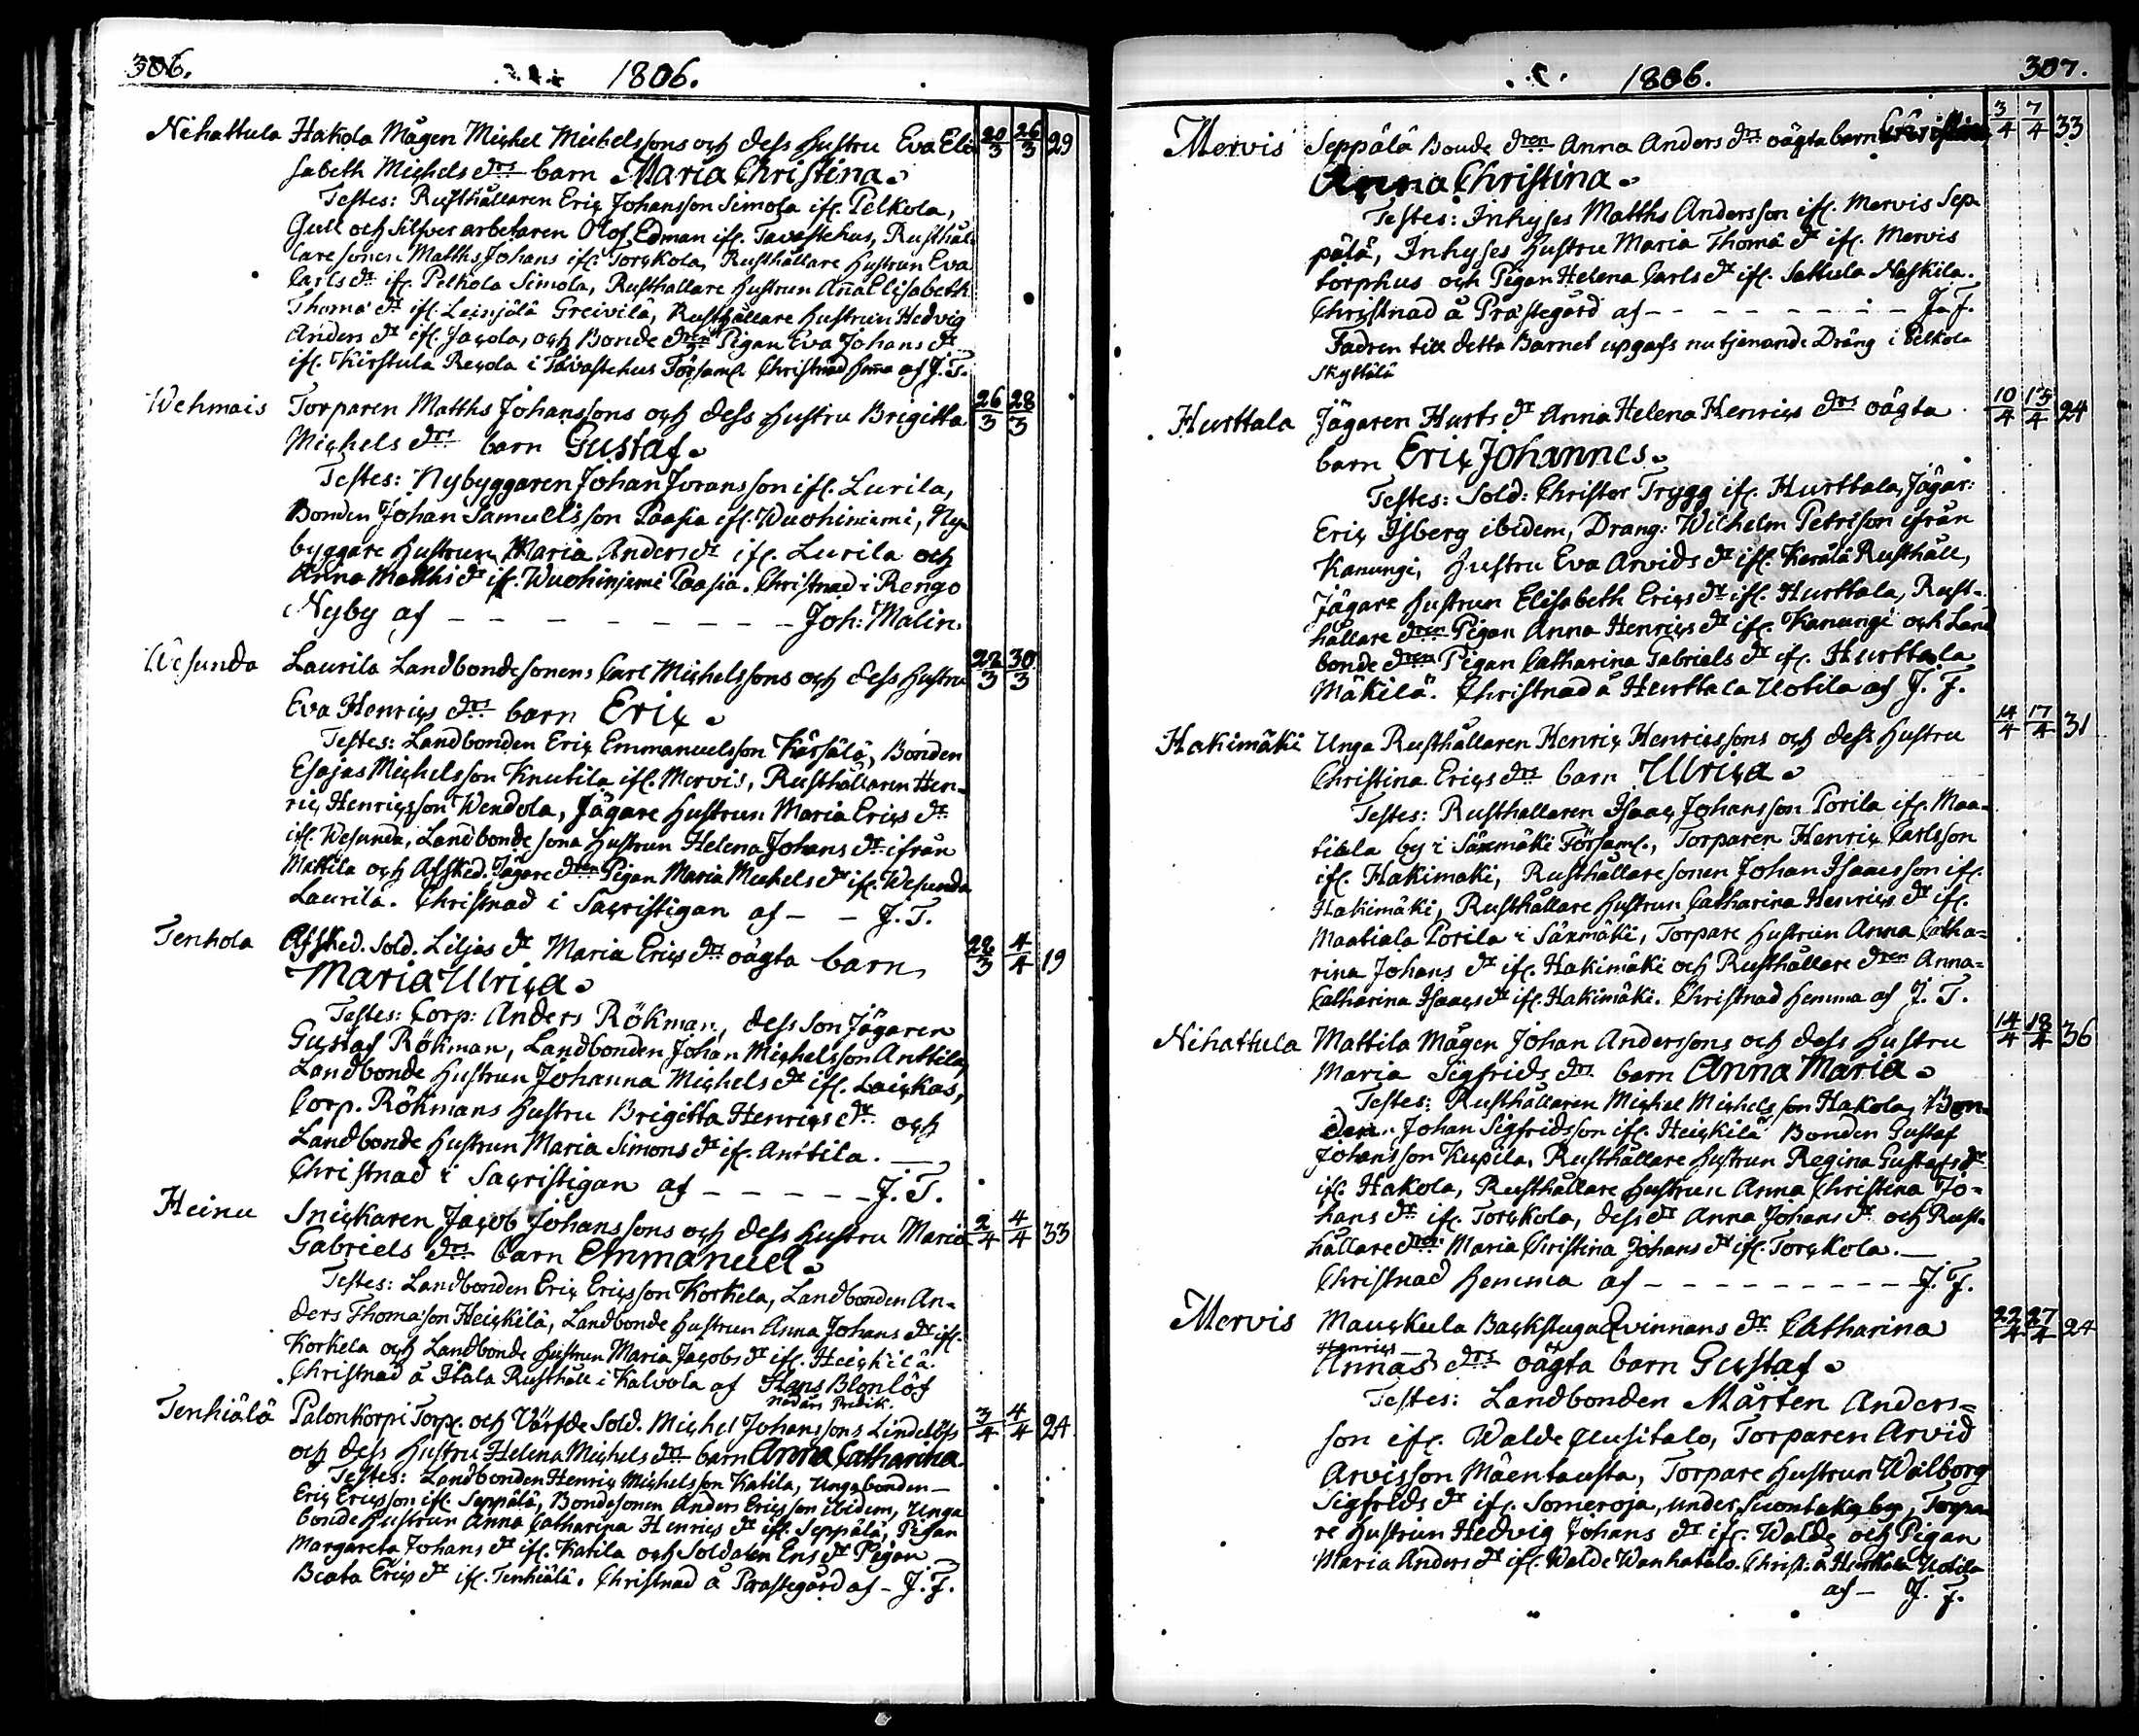 306.
1806.
Nihattula Hakola Mågen Michel Michelssons och dess hustru Eva Eli- 20/3 26/3 29
sabeth Michels drs barn Maria Christina.
Testes: Rusthållaren Eric Johansson Simola ifr. Pelkola,
Gull och Silfver arbetaren Olof Edman ifr. Tavastehus, Rusthål-
lare sonen Matths Johans ifr. Torckola, Rusthållare hustrun Eva
Carls dr ifr. Pelkola Simola, Rusthållare hustrun Aña Elisabeth
Thoma dr ifr. Leinjälä Greivilä, Rusthållare hustrun Hedvig
Anders dr ifr. Jacola, och Bonde dren Pigan Eva Johans dr
ifr. Kirstula Recola i Tavastehus Församl. Christnad hema af J. T.
Wehmais Torparen Matths Johanssons och dess hustru Brigitta 26/3 28/3
Michels drs barn Gustaf.
Testes: Nybyggaren Johan Joransson ifr. Lurila,
Bonden Johan Samuelsson Paasia ifr. Wuohiniemi, Ny-
byggare hustrun Maria Anders dr ifr. Lurila och
Anna Matths dr ifr. Wuohiniemi Paasia. Christnad i Rengo
Nyby af - - - - - - - - Joh: Malin.
Wesunda Laurila Landbondesonens Carl Michelssons och dess hustru 22/3 30/3
Eva Henrics drs barn Eric.
Testes: Landbonden Eric Emmanuelsson Kärsälä, Bonden
Esajas Michelsson Knutila ifr. Mervis, Rusthållaren Hen-
ric Henricsson Wendola, Jägare hustrun Maria Erics dr
ifr. Wesunda, Landbonde sona hustrun Helena Johans dr ifrån
Mattila och Afsked. Jägare dren Pigan Maria Michels dr ifr. Wesunda
Laurila. Christnad i Sacristigan af - - J. T.
Tenhola Afsked. Sold. Liljas dr Maria Erics drs oägta barn 28/3 4/4 19
Maria Ulrica.
Testes: Corp: Anders Rökman, dess Son Jägaren
Gustaf Rökman, Landbonden Johan Michelsson Anttila,
Landbonde hustrun Johanna Michels dr ifr. Laickas,
Corp. Rökmans hustru Brigitta Henrics dr och
Landbonde hustrun Maria Simons dr ifr. Anttila. —
Christnad i Sacristigan af - - - - - J. T.
Heinu Snickaren Jacob Johanssons och dess hustru Maria 2/4 4/4 33
Gabriels drs barn Emmanuel.
Testes: Landbonden Eric Ericsson Korkela, Landbonden An-
ders Thomasson Heickilä, Landbonde hustrun Anna Johans dr ifr.
Korkela och Landbonde hustrun Maria Jacobs dr ifr. Heickilä.
Christnad å Itala Rusthåll i Kalvola af Hans Blonlöf
Nådårs Predik.
Tenhiälä Palonkorpi Torp. och Värfde Sold. Michel Johanssons Lindelöfs 3/4 4/4 24
och dess hustru Helena Michels drs barn Anna Catharina.
Testes: Landbonden Henric Michelsson Katila, Unga bonden
Eric Ericsson ifr. Seppälä, Bondesonen Anders Ericsson ibidem, Unga
bonde hustrun Anna Catharina Henrics dr ifr. Seppälä, Pigan
Margareta Johans dr ifr. Katila och Soldaten Ens dr Pigan
Beata Erics dr ifr. Tenhiälä. Christnad å Prästegård af - J. T.
1806.
307.
Mervis Seppälä Bonde dren Anna Anders drs oägta barn 3/4 7/4 33
Anna Christina.
Testes: Inhyses Matths Andersson ifr. Mervis Sep-
pälä, Inhyses hustru Maria Thoma dr ifr. Mervis
torphus och Pigan Helena Carls dr ifr. Sattula Naskila.
Christnad å Prästegård af - - - - - - - J. T.
Fadren till detta Barnet upgafs nu tjenande Dräng i Pelkola
Skyttälä
Hurttala Jägaren Hurts dr Anna Helena Henrics drs oägta 10/4 13/4 24
barn Eric Johannes.
Testes: Sold: Christer Trygg ifr. Hurttala, Jägar:
Eric Isberg ibidem, Drang: Wilhelm Petrison ifrån
Kanungi, hustru Eva Arvids dr ifr. Kerälä Rusthåll,
Jägare hustrun Elisabeth Erics dr ifr. Hurttala, Rust-
hållare dren Pigan Anna Henrics dr ifr. Kanungi och Land
bonde dren Pigan Catharina Gabriels dr ifr. Hurttala
Mäkilä. Christnad å Hurttala Uotila af J. T.
Hakimäki Unga Rusthållaren Henric Henricssons och dess hustru 14/4 17/4 31
Christina Erics drs barn Ulrica.
Testes: Rusthållaren Isaac Johansson Porila ifr. Maa-
tiala by i Säxmäki Församl., Torparen Henric Carlsson
ifr. Hakimäki, Rusthållare sonen Johan Isaacsson ifr.
Hakimäki, Rusthållare hustrun Catharina Henrics dr ifr.
Maatiala Porila i Säxmäki, Torpare hustrun Anna Catha-
rina Johans dr ifr. Hakimäki och Rusthållare dren Anna-
Catharina Isaacs dr ifr. Hakimäki. Christnad hemma af J. T.
Nihattula Mattila Mågen Johan Anderssons och dess hustru 14/4 18/4 36
Maria Sigfrids drs barn Anna Maria.
Testes: Rusthållaren Michel Michelsson Hakola, Bon-
den Johan Sigfridsson ifr. Heickilä Bonden Gustaf
Johansson Kupila, Rusthållare hustrun Regina Gustafs dr
ifr. Hakola, Rusthållare hustrun Anna Christina Jo-
hans dr ifr. Torckola, dess dr Anna Johans dr och Rust-
hållare dren Maria Christina Johans dr ifr. Torckola. —
Christnad hemma af - - - - - - - - - J. T.
Mervis Mauckula Backstugu Qvinnans dr Catharina 22/4 27/4 24
Henrics
Annas drs oägta barn Gustaf.
Testes: Landbonden Mårten Anders-
son ifr. Walde Uusitalo, Torparen Arvid
Arvisson Mäentausta, Torpare hustrun Walborg
Sigfrids dr ifr. Someroja, under Suontaka by, Torpa-
re hustrun Hedvig Johans dr ifr. Walde och Pigan
Maria Anders dr ifr. Walde Wanhatalo. Christ. å Hurttala Uotila
af - J. T.